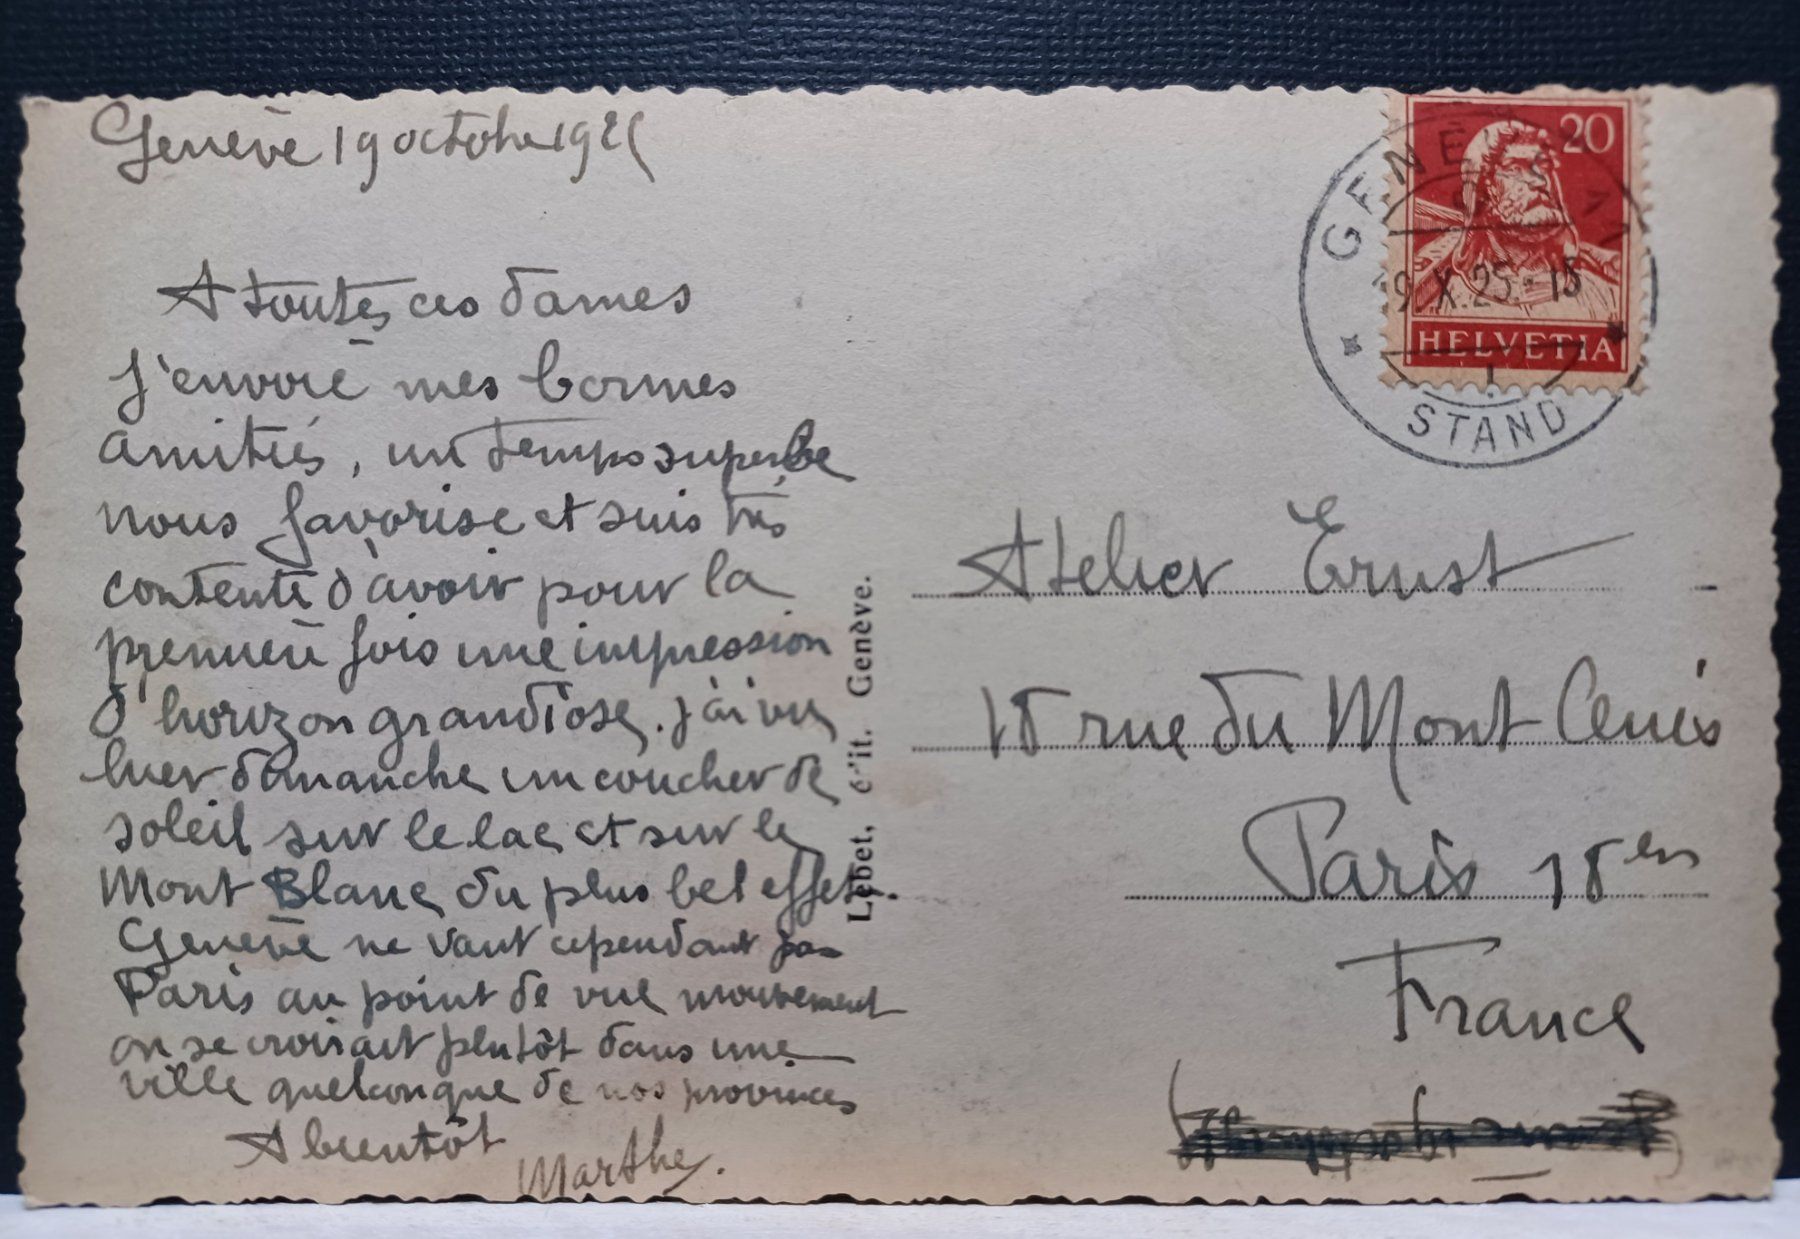 Genève 19 octobre 192
A toutes ces dames
J'envoie mes bonnes
amitiés, un temps superbe
nous favorise et suis très
contente d'avoir pour la
première fois une impression
d'horizon grandiose. j'ai vu
hier dimanche un coucher de
soleil sur le lac et sur le
Mont Blanc du plus bel effet.
Genève ne vaut cependant pas
Paris au point de vue mouvement
on se croirait plutôt dans une
ville quelconque de nos provinces
A bientôt
Marthe.
Lebet, édit. Genève.
20
HELVETIA
GENÈVE
19.X.25.-18
1
STAND
Atelier Ernst
18 rue du Mont Cenis
Paris 18
France